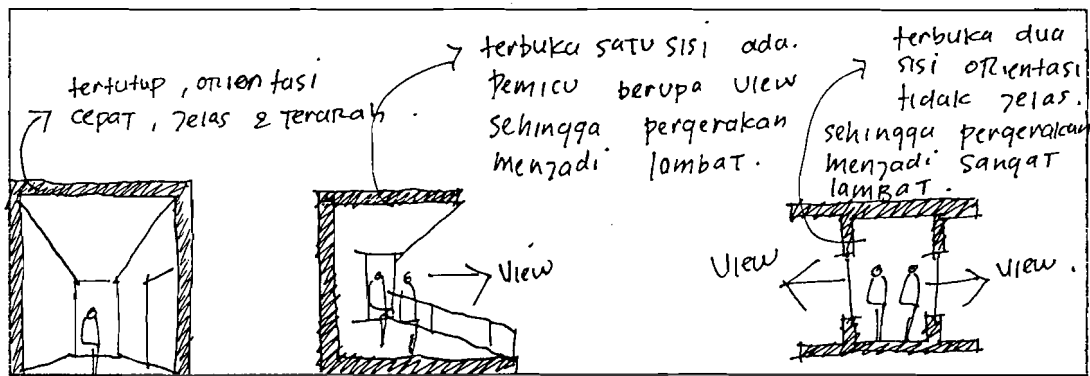 tertutup, orientasi
cepat, jelas & terarah.
terbuka satu sisi ada.
pemicu berupa view
sehingga pergerakan
menjadi lambat.
terbuka dua
sisi orientasi
tidak jelas.
sehingga pergerakan
menjadi sangat
lambat.
View
View
View.